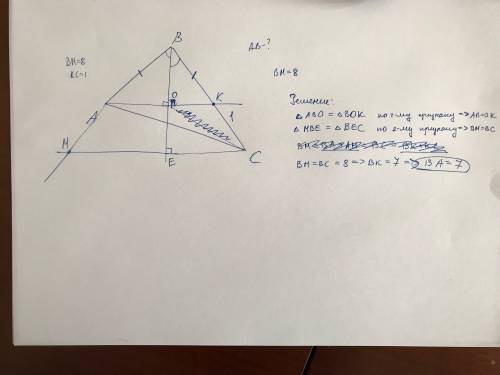 AB-?
BM=8
KC=1
BM=8
B
O
K
1
A
M
E
C
Решение:
△ABO = △BOK по 2-му признаку => AB=OK
△MBE = △BEC по 2-му признаку => BM=BC
BM=BC = 8 => BK = 7 => BA = 7